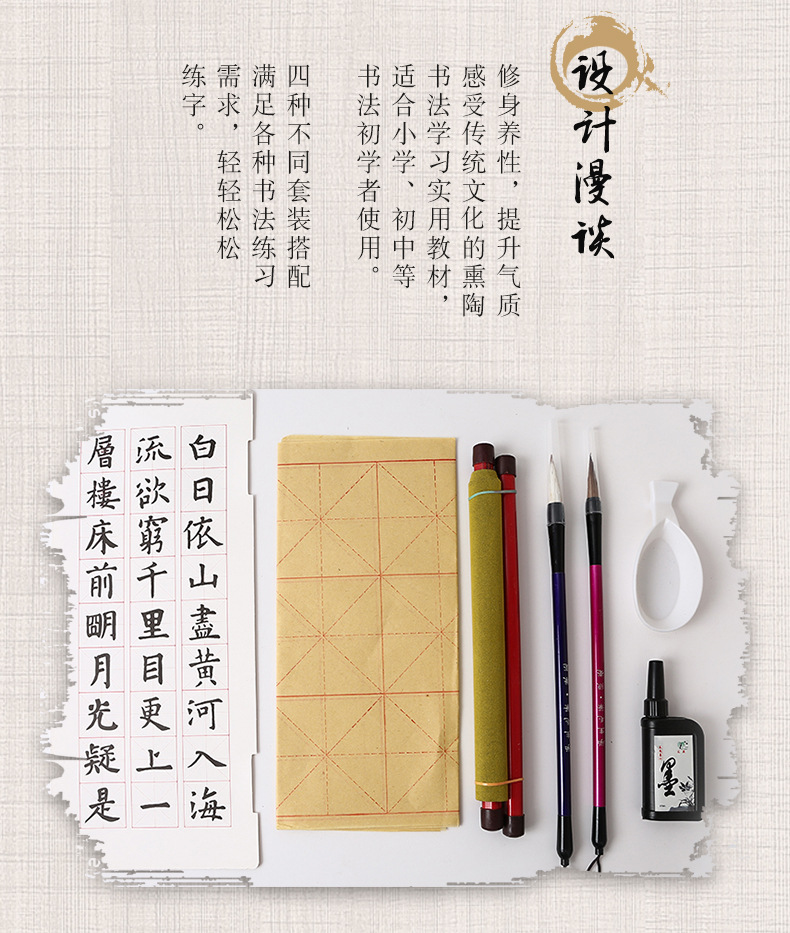 设计漫谈
修身养性，提升气质
感受传统文化的熏陶
书法学习实用教材，
适合小学、初中等
书法初学者使用。
四种不同套装搭配
满足各种书法练习
需求，轻轻松松
练字。
白日依山盡黄河入海
流欲窮千里目更上一
層樓床前明月光疑是
墨